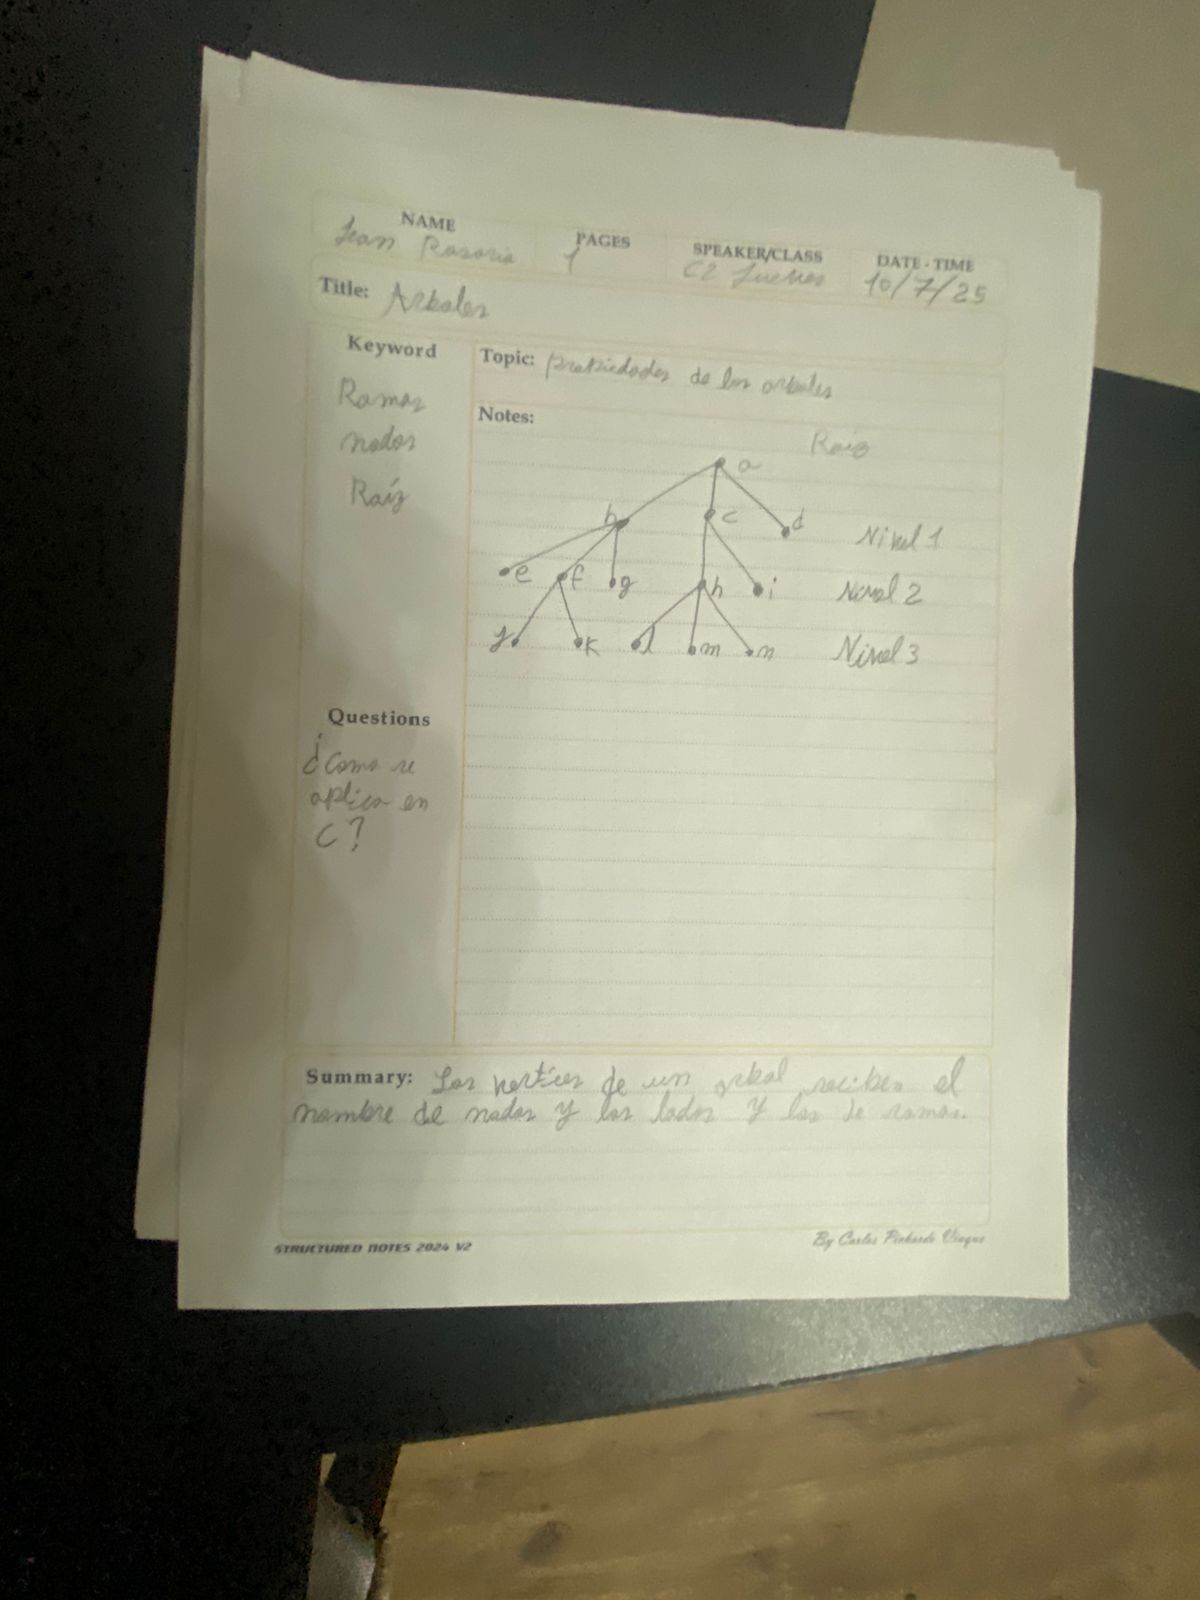 NAME
Jean Rosario
PAGES
1
SPEAKER/CLASS
C2 Jueves
DATE - TIME
10/7/25
Title: Arboles
Keyword
Ramas
nodos
Raíz
Topic: propiedades de los arboles
Notes:
Raíz
a
b c d Nivel 1
e f g h i Nivel 2
j k l m n Nivel 3
Questions
¿Como se
aplica en
C?
Summary: Los vertices de un arbol reciben el
nombre de nodos y los lados y los de ramas.
STRUCTURED NOTES 2024 V2
By Carlos Pichardo Viuque